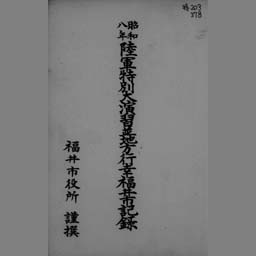 特203
178
昭和八年
陸軍特別大演習並地方行幸福井市記録
福井市役所 謹撰